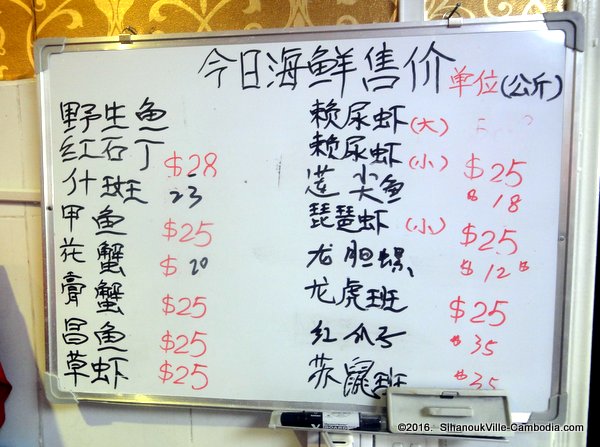 今日海鲜售价 单位(公斤)
野生鱼
红石丁 $28
什斑 23
甲鱼 $25
花蟹 $20
膏蟹 $25
昌鱼 $25
草虾 $25
赖尿虾(大)
赖尿虾(小) $25
莲尖鱼 $18
琵琶虾(小) $25
龙胆螺 $12
龙虎斑 $25
红爪子 $35
苏鼠班 $35
©2016. SihanoukVille-Cambodia.com